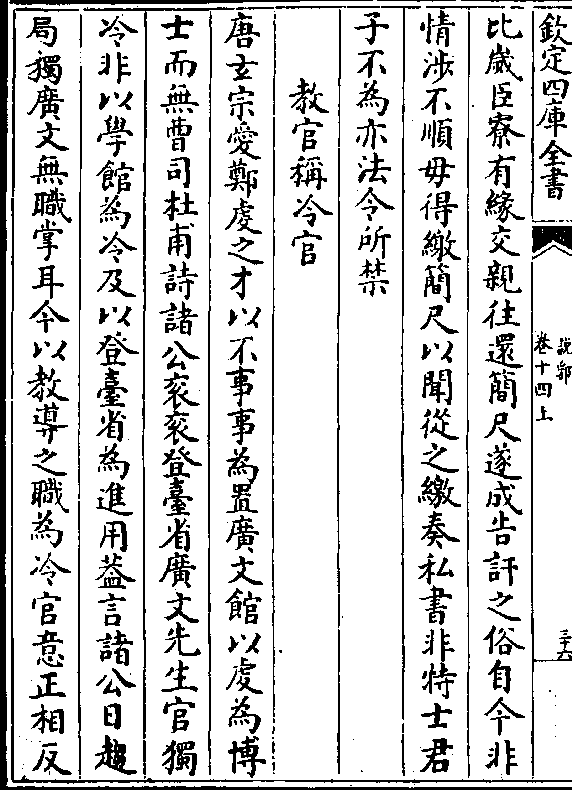 欽定四庫全書
說郛
卷十四上
三十六
比歲臣寮有緣交親往還簡尺遂成告訐之俗自今非
情涉不順毋得繳簡尺以聞從之繳奏私書非特士君
子不為亦法令所禁
教官稱冷官
唐玄宗愛鄭虔之才以不事事為置廣文館以虔為博
士而無曹司杜甫詩諸公衮衮登臺省廣文先生官獨
冷非以學館為冷及以登臺省為進用葢言諸公日趨
局獨廣文無職掌耳今以教導之職為冷官意正相反